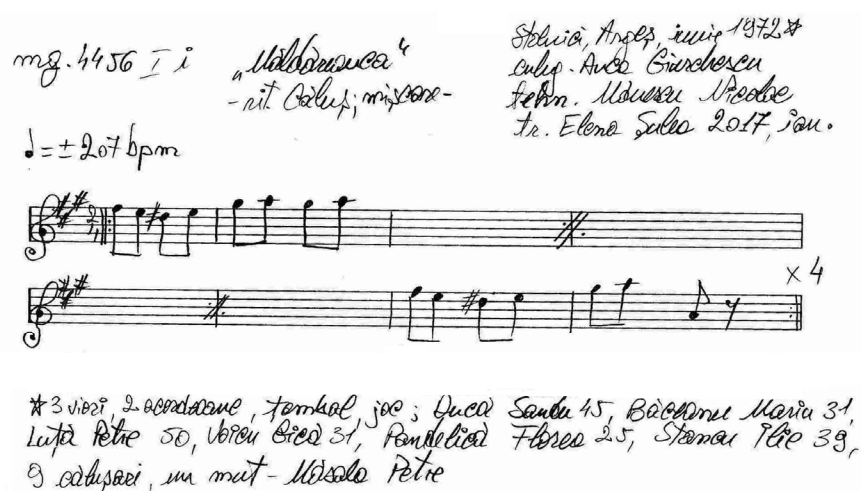 mg. 4456 I i
„Moldoveanca“
- rit. Căluș; mișcare -
Stolnici, Argeș, iunie 1972*
culeg. Anca Giurchescu
tehn. Mănescu Nicolae
tr. Elena Șulea 2017, ian.
♩=±207 bpm
x 4
* 3 viori, 2 acordeoane, țambal, joc; Ducă Sandu 45, Marin 31,
Luță Petre 50, Voicu Gică 31, Pandelică Florea 25, Stancu Ilie 39,
9 călușari, un mut - Petre